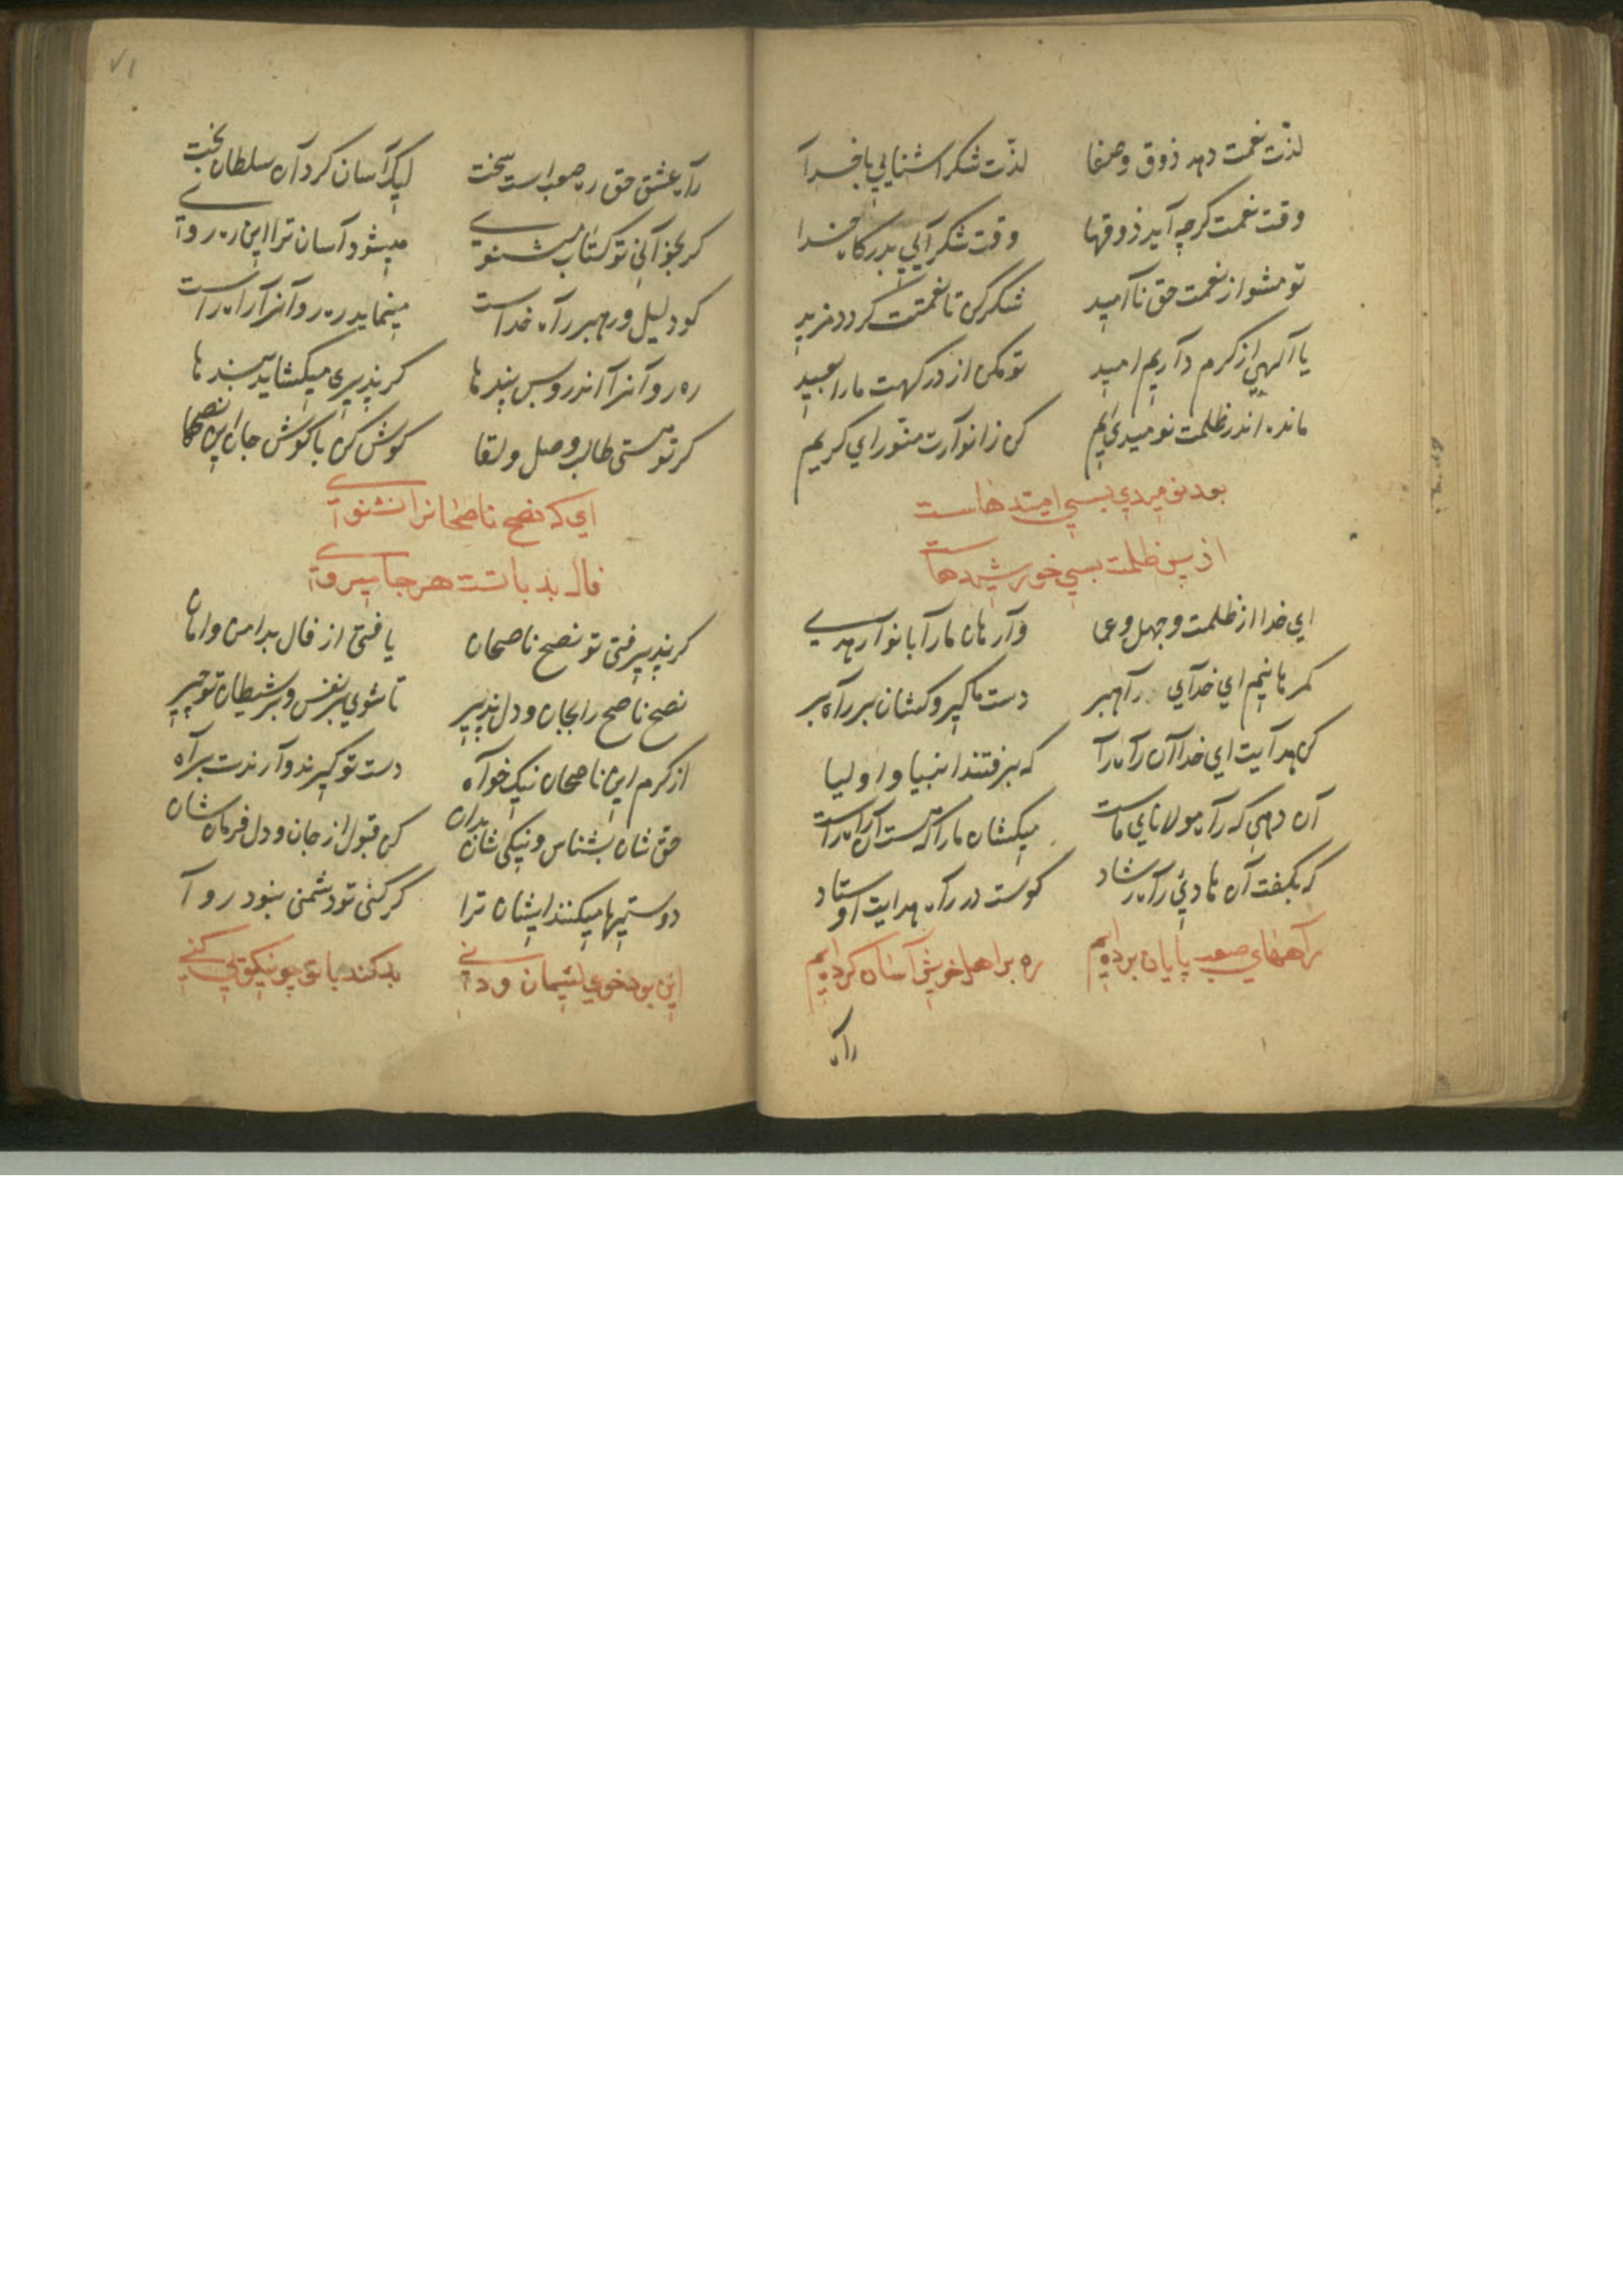 لذّت نعمت دهد ذوق و صفا لذّت شکر اشنایی با خدا
وقت نعمت کرچه آید ذوقها وقت شکر آیی بدرکاه خدا
تو مشو از نعمت حق نا امید شکر کن تا نعمتت کردد مزید
یا آلهی از کرم داریم امید تو مکن از درکهت ما را بعید
مانده اندر ظلمت نومیدی ایم کن ز انوارت منوّر ای کریم
بعد نومیدی بسی امیدهاست
از پس ظلمت بسی خورشیدهاست
ای خدا از ظلمت و جهل و عمی وارهان ما را بانوار هدی
کمرهانیم ای خدای راهبر دست ما کیر و کشان بر راه بر
کن هدایت ای خدا آن راه را که برفتند انبیا و اولیا
آن رهی که راه مولانای ماست میکشان ما را که هست آن راه راست
که بکفت آن هادئ راه رشاد کوست در راه هدایت اوستاد
راههای صعب پایان برده‌ایم ره بر اهل خویش آسان کرده‌ایم
راه
۷۱
راه عشق حق ره صعب است سخت لیک آسان کرد آن سلطان بخت
کر بخوانی تو کتاب مثنوی میشود آسان ترا این ره روی
کو دلیل و رهبر راه خداست مینماید رهروانرا راه راست
ره روانرا اندرو بس پندها کر پذیری میکشاید بندها
کر تو هستی طالب وصل و لقا کوش کن با کوش جان این نصحها
ای که نصح ناصحانرا نشنوی
فال بد با تست هر جا میروی
کر پذیرفتی تو نصح ناصحان یافتی از فال بد امن و امان
نصح ناصح را بجان و دل پذیر تا شوی بر نفس و بر شیطان تو چیر
از کرم این ناصحان نیک خواه دست تو کیرند و آرندت براه
حق شان بشناس و نیکی شان بدان کن قبول از جان و دل فرمان شان
دوستیها میکنند ایشان ترا کر کنی تو دشمنی نبود روا
این بود خوی لئیمان و دنی بد کند با تو چو نیکویی کنی